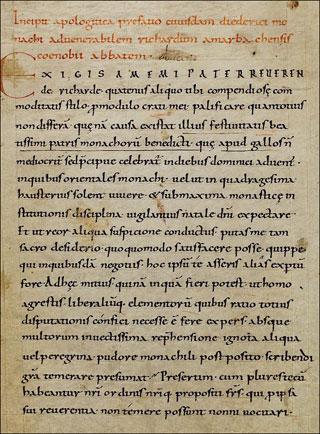 Incipit apologitica prefatio cuiusdam diederici mo
nachi aduenerabilem richardum amarbachensis
coenobii abbatem.
EXIGIS A ME MI PATER REUEREN
de richarde quatenus aliquo tibi compendiosę com
moditatis stilo, pmodulo crati mei palificare quantotius
non differā, quę nā causa existat illius festiuitatis bea
tissimi patris monachorū benedicti, quę apud gallos n̄
mediocrit̄ sed p̄cipue celebrat̄ indiebus dominici aduent̄
inquibus orientales monachi uelut in quadragesima
haustenus solent uiuere & submaxima monasticę in
stitutionis disciplina uigilantius natale dn̄i expectare.
Et ut reor aliqua suspicione conductus putas me tam
sacro desiderio quoquomodo satisfacere posse, quippe
qui inquibusdā negotiis hoc ipsū te asseris alias exptū
fore. Adhęc mitius quinā inquā fieri potest, ut homo
agrestis liberaliūq; elementorū quibus ratio totius
disputationis confici necesse ē fere expers, absque
multorum inuectissima rep̄hensione ignota aliqua
uel peregrina pudore monachili post posito scribendi
gr̄a temerare presumat. Presertim cum plures tecū
habeantur nr̄i ordinis nr̄iq; propositi fr̄s, qui p ipsa
sui reuerentia non temere possunt nonni uocitari.